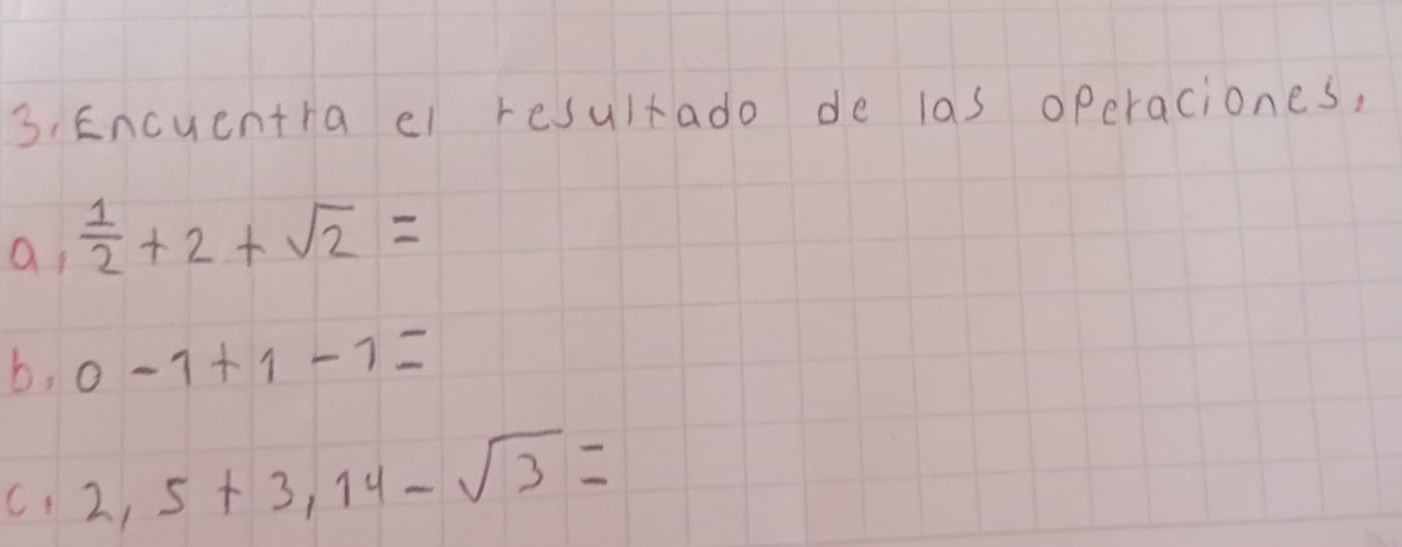 3. Encuentra el resultado de las operaciones.
a. 1/2 + 2 + √2 =
b. 0 - 1 + 1 - 1 =
c. 2,5 + 3,14 - √3 =